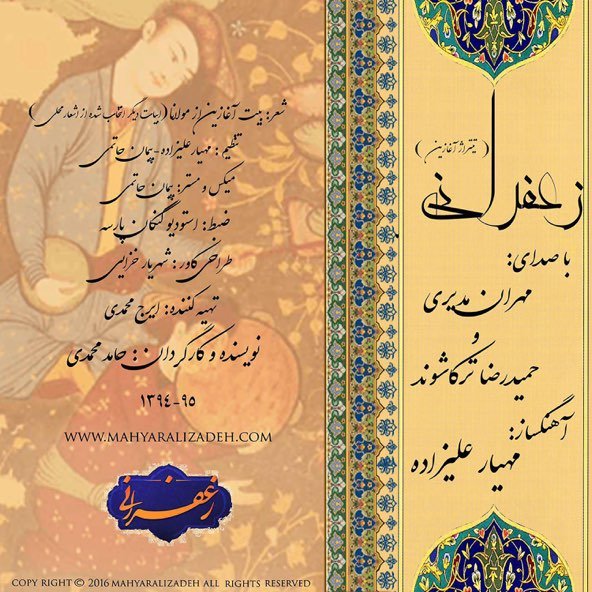 زعفرانی
( تیتراژ آغازین )
با صدای:
مهران مدیری
و
حمیدرضا ترکاشوند
آهنگساز:
مهیار علیزاده
شعر: بیت آغازین از مولانا (ابیات دیگر انتخاب شده از اشعار محلی)
تنظیم : مهیار علیزاده - پیمان حاتمی
میکس و مستر: پیمان حاتمی
ضبط: استودیو کنگان پارسه
طراحی کاور : شهریار خزایی
تهیه کننده: ایرج محمدی
نویسنده و کارگردان : حامد محمدی
۱۳۹۴-۹۵
WWW.MAHYARALIZADEH.COM
زعفرانی
COPY RIGHT © 2016 MAHYARALIZADEH ALL RIGHTS RESERVED